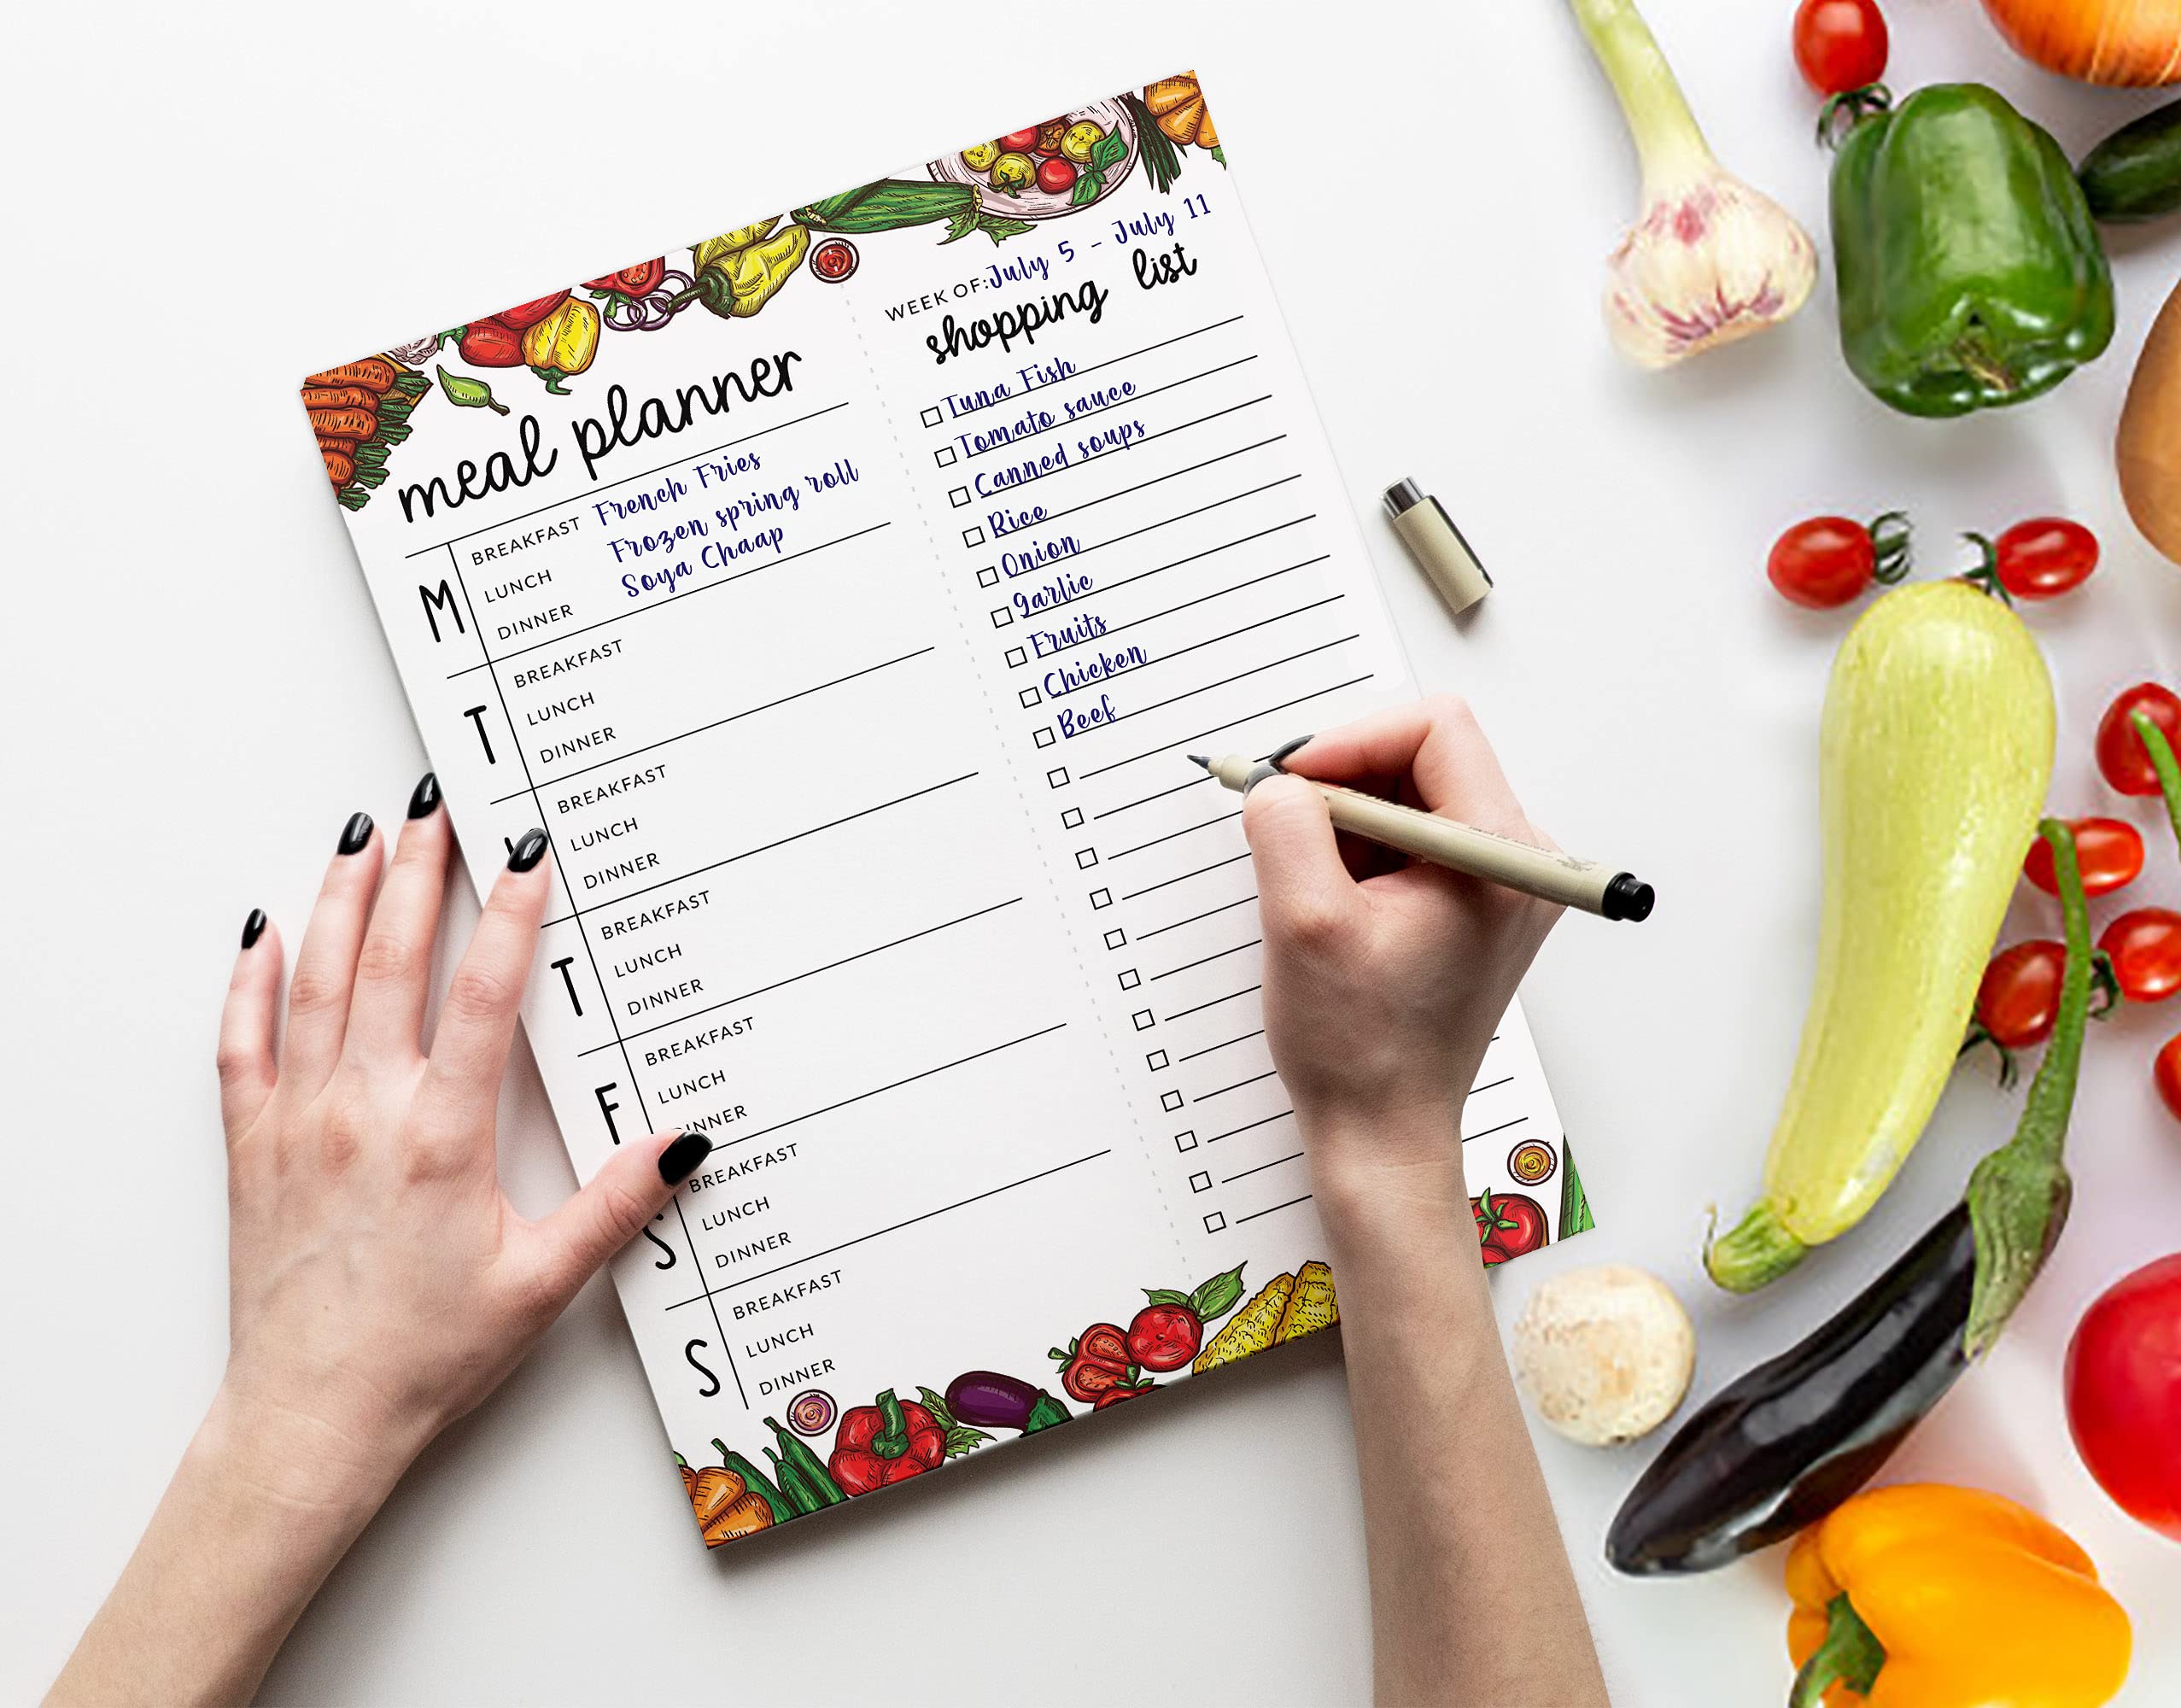 meal planner
M
BREAKFAST French Fries
LUNCH Frozen spring roll
DINNER Soya Chaap
T
BREAKFAST
LUNCH
DINNER
BREAKFAST
LUNCH
DINNER
T
BREAKFAST
LUNCH
DINNER
F
BREAKFAST
LUNCH
DINNER
S
BREAKFAST
LUNCH
DINNER
S
BREAKFAST
LUNCH
DINNER
WEEK OF: July 5 - July 11
shopping list
Tuna Fish
Tomato sauce
Canned soups
Rice
Onion
Garlic
Fruits
Chicken
Beef